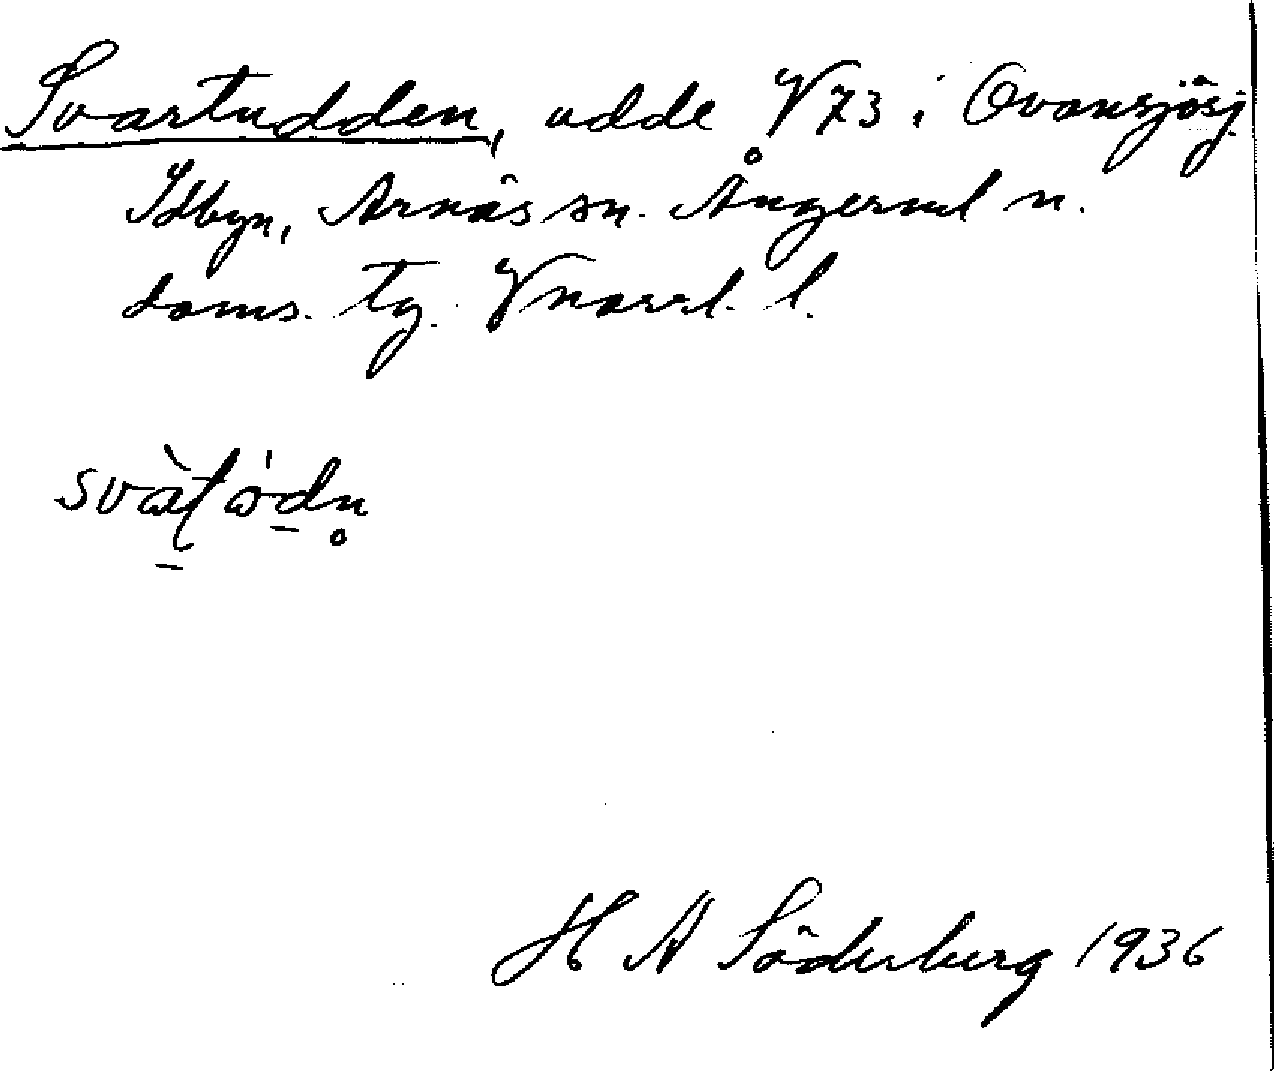 Svartudden, udde V73 i Ovansjösj
Idbyn, Arnäs sn. Ångerml n.
doms. tg. Vnorrl. l.
H A Söderberg 1936